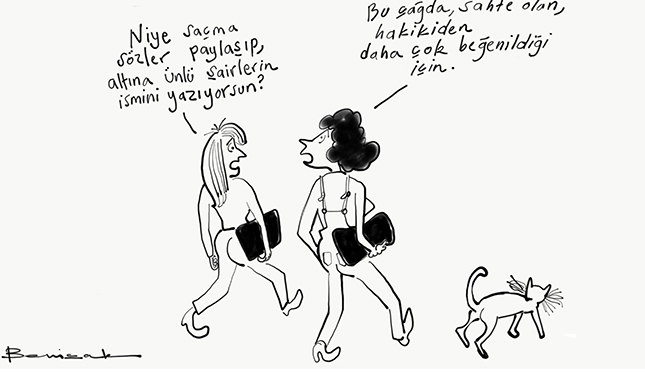 Niye saçma
sözler paylaşıp,
altına ünlü şairlerin
ismini yazıyorsun?
Bu çağda, sahte olan,
hakikiden
daha çok beğenildiği
için.
Benisak